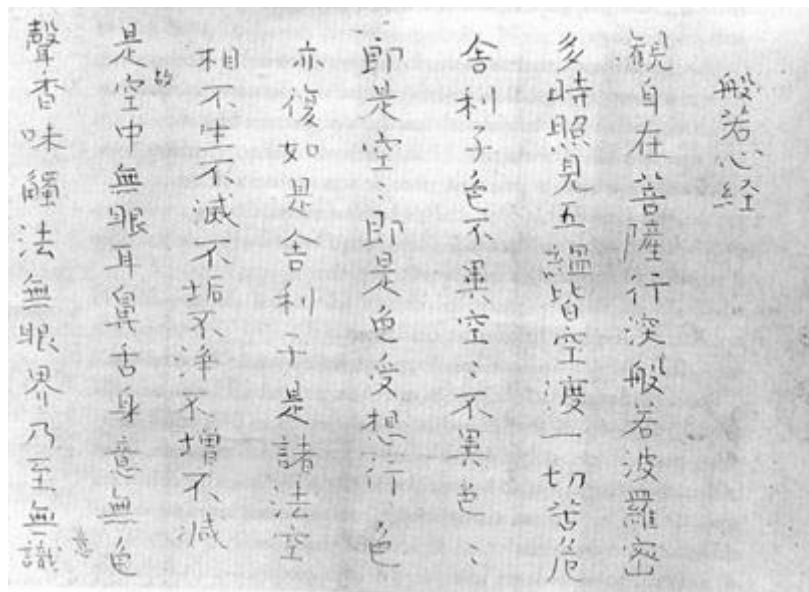 般若心経
観自在菩薩行深般若波羅密
多時照見五蘊皆空渡一切苦厄
舎利子色不異空、不異色、
即是空、即是色受想行、色
亦復如是舎利子是諸法空
相不生不滅不垢不净不増不減
是空中無眼耳鼻舌身意無色
聲香味觸法無眼界乃至無識
意